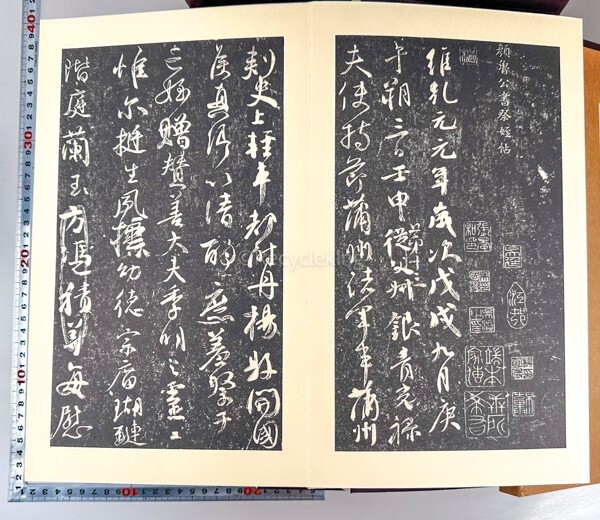 顏魯公書祭姪帖
維乾元元年歲次戊戌九月庚
午朔三日壬申從父
第十三
銀青光祿
夫使持節蒲州諸軍事蒲州
刺史上輕車都尉丹楊縣開國
侯真卿以清酌庶羞祭于
亡姪贈贊善大夫季明之靈曰
惟爾挺生夙標幼德宗廟瑚璉
階庭蘭玉方憑積善每慰